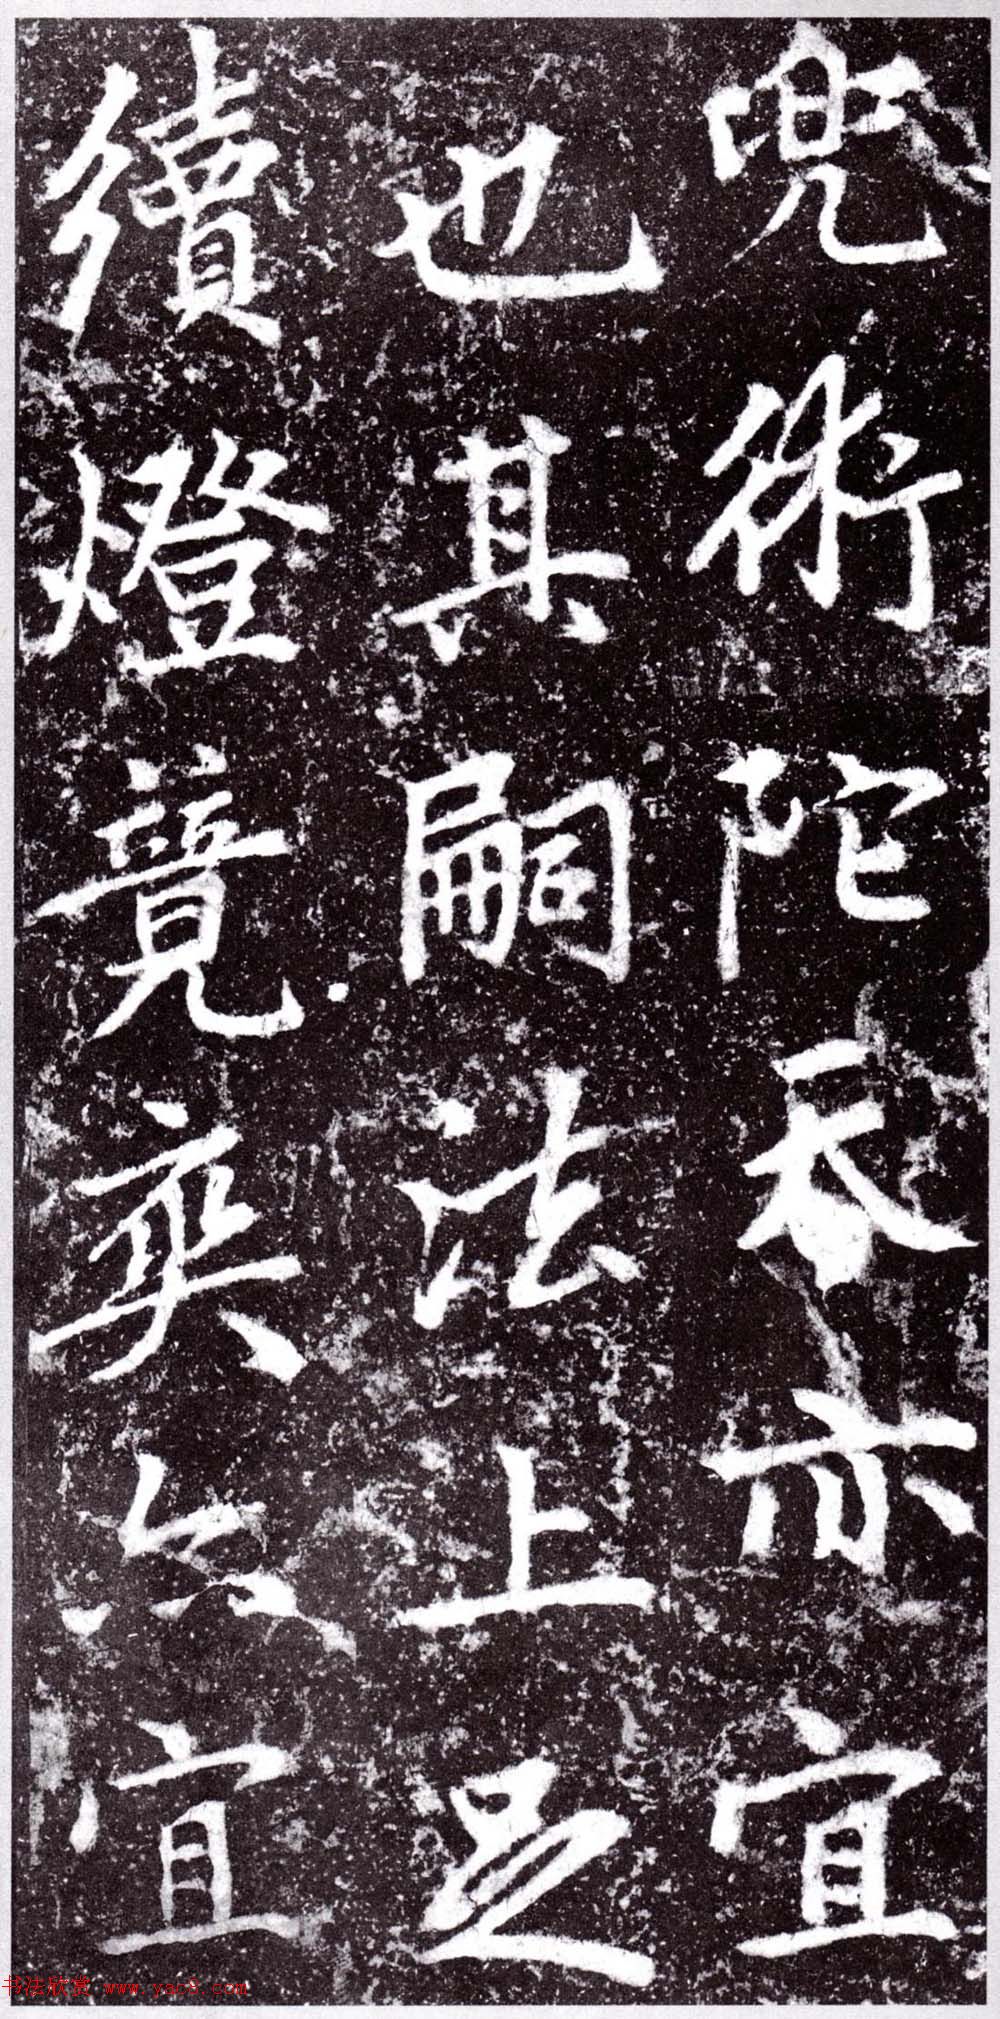 兜術陀吞亦宜
也其嗣法上足
續燈竟爽亦宜
书法欣赏 www.yac8.com